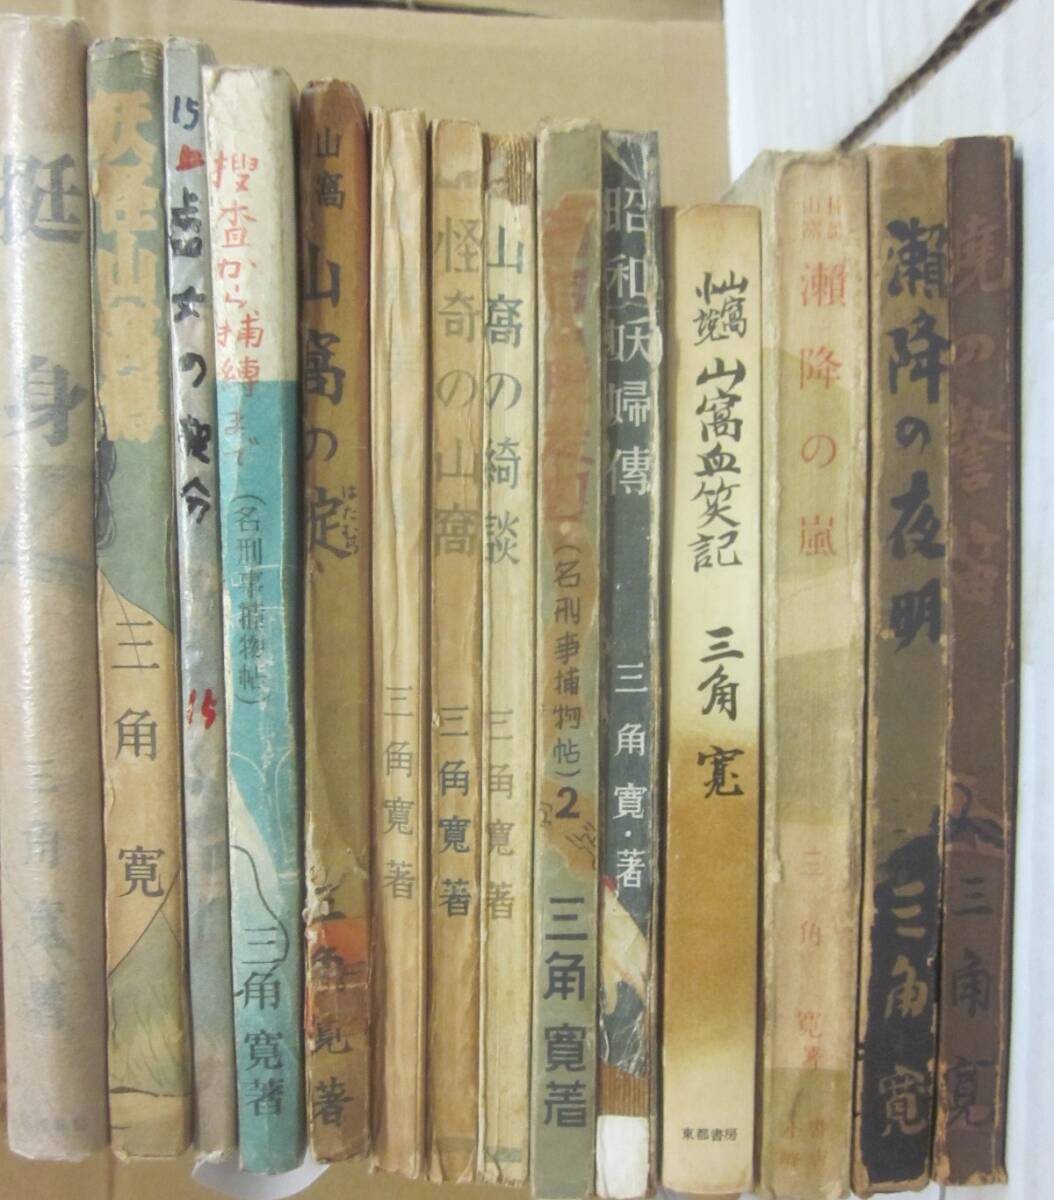 挺身
三角寛著
三角寛
15
血占女の
15
捜査から捕縛まで
(名刑事捕物帖)
三角寛著
山窩
山窩の掟
はたむら
三角寛著
三角寛著
怪奇の山窩
三角寛著
山窩の綺談
三角寛著
(名刑事捕物帖)2
三角寛著
昭和妖婦傳
三角寛・著
山窩小説
山窩血笑記
三角寛
東都書房
瀬降の嵐
三角寛著
瀬降の夜明
三角寛
三角寛